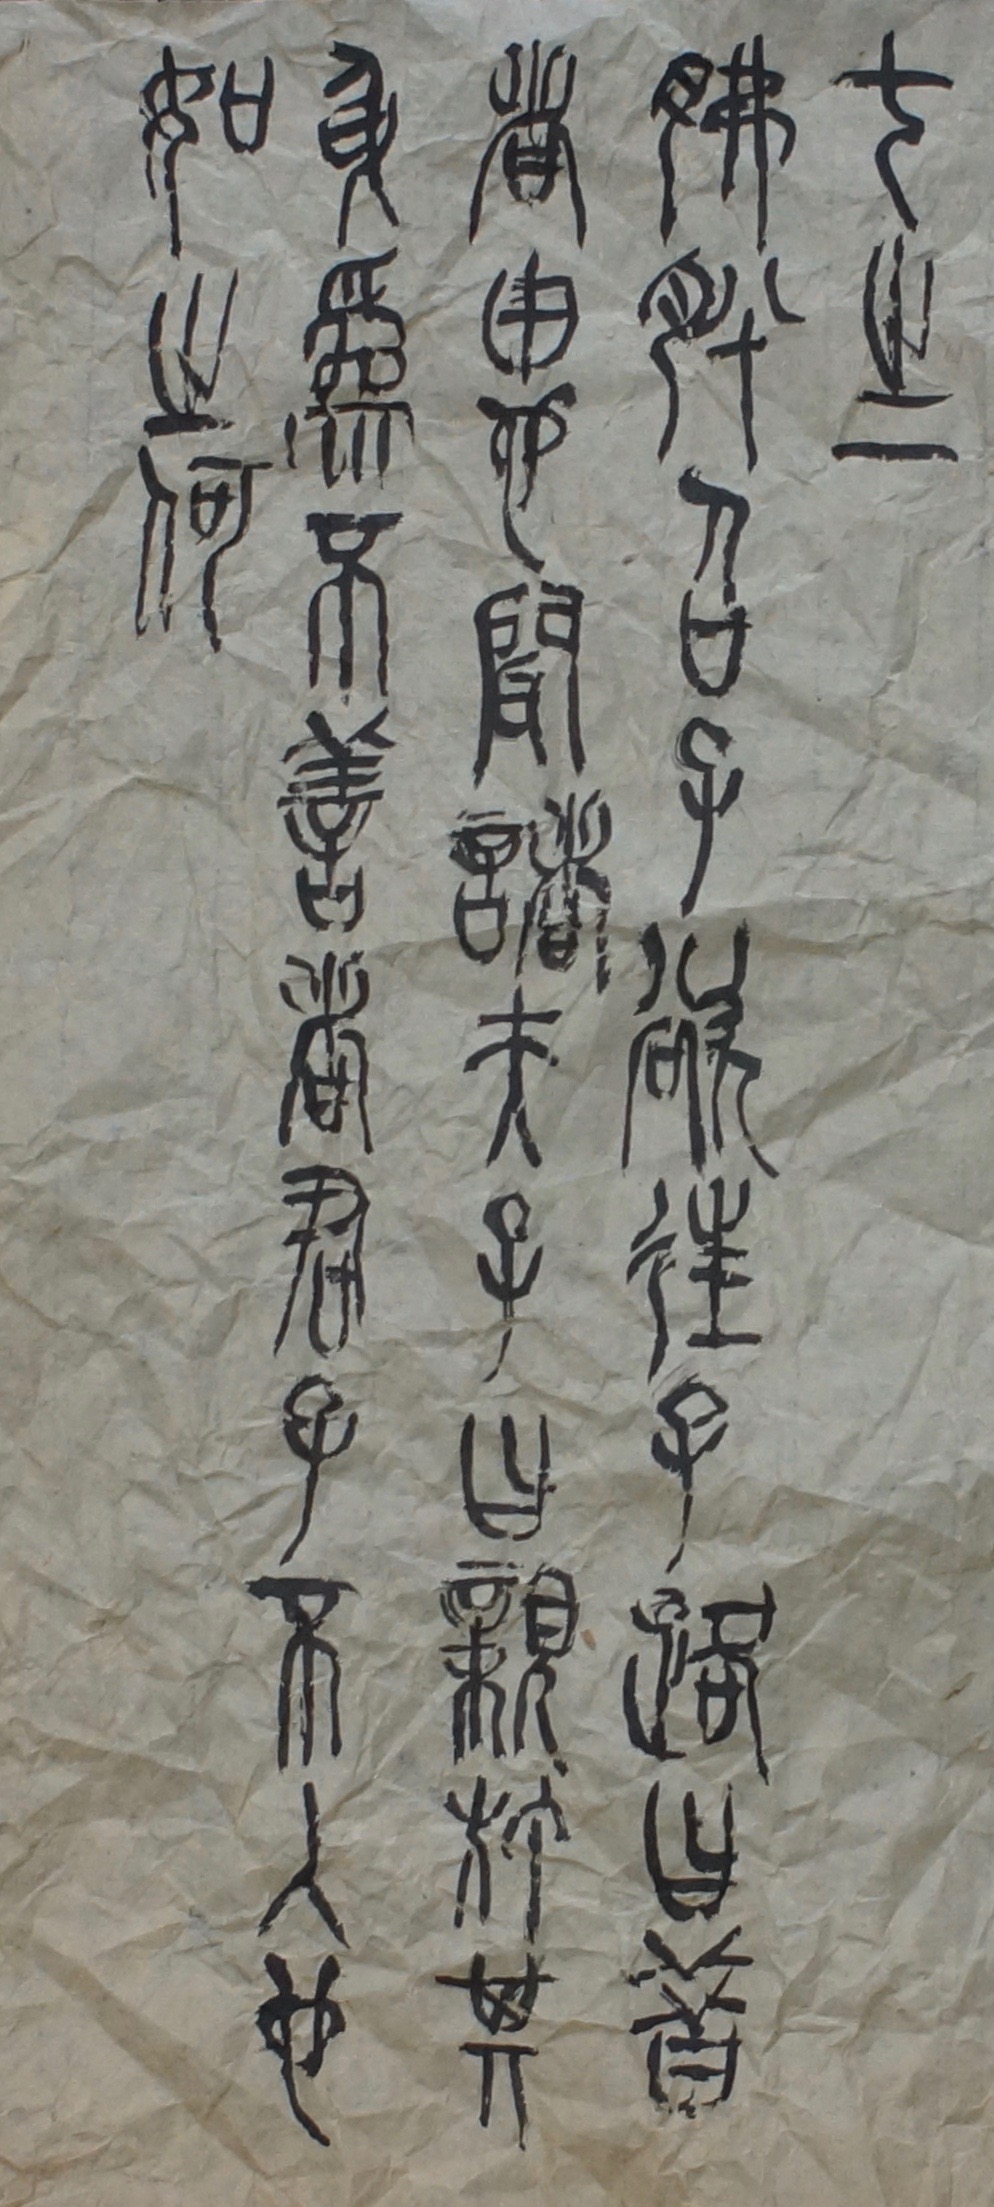 七之一
胇肸召子欲往子路曰昔
者由也聞諸夫子曰親於其
身爲不善者君子不入也
如之何